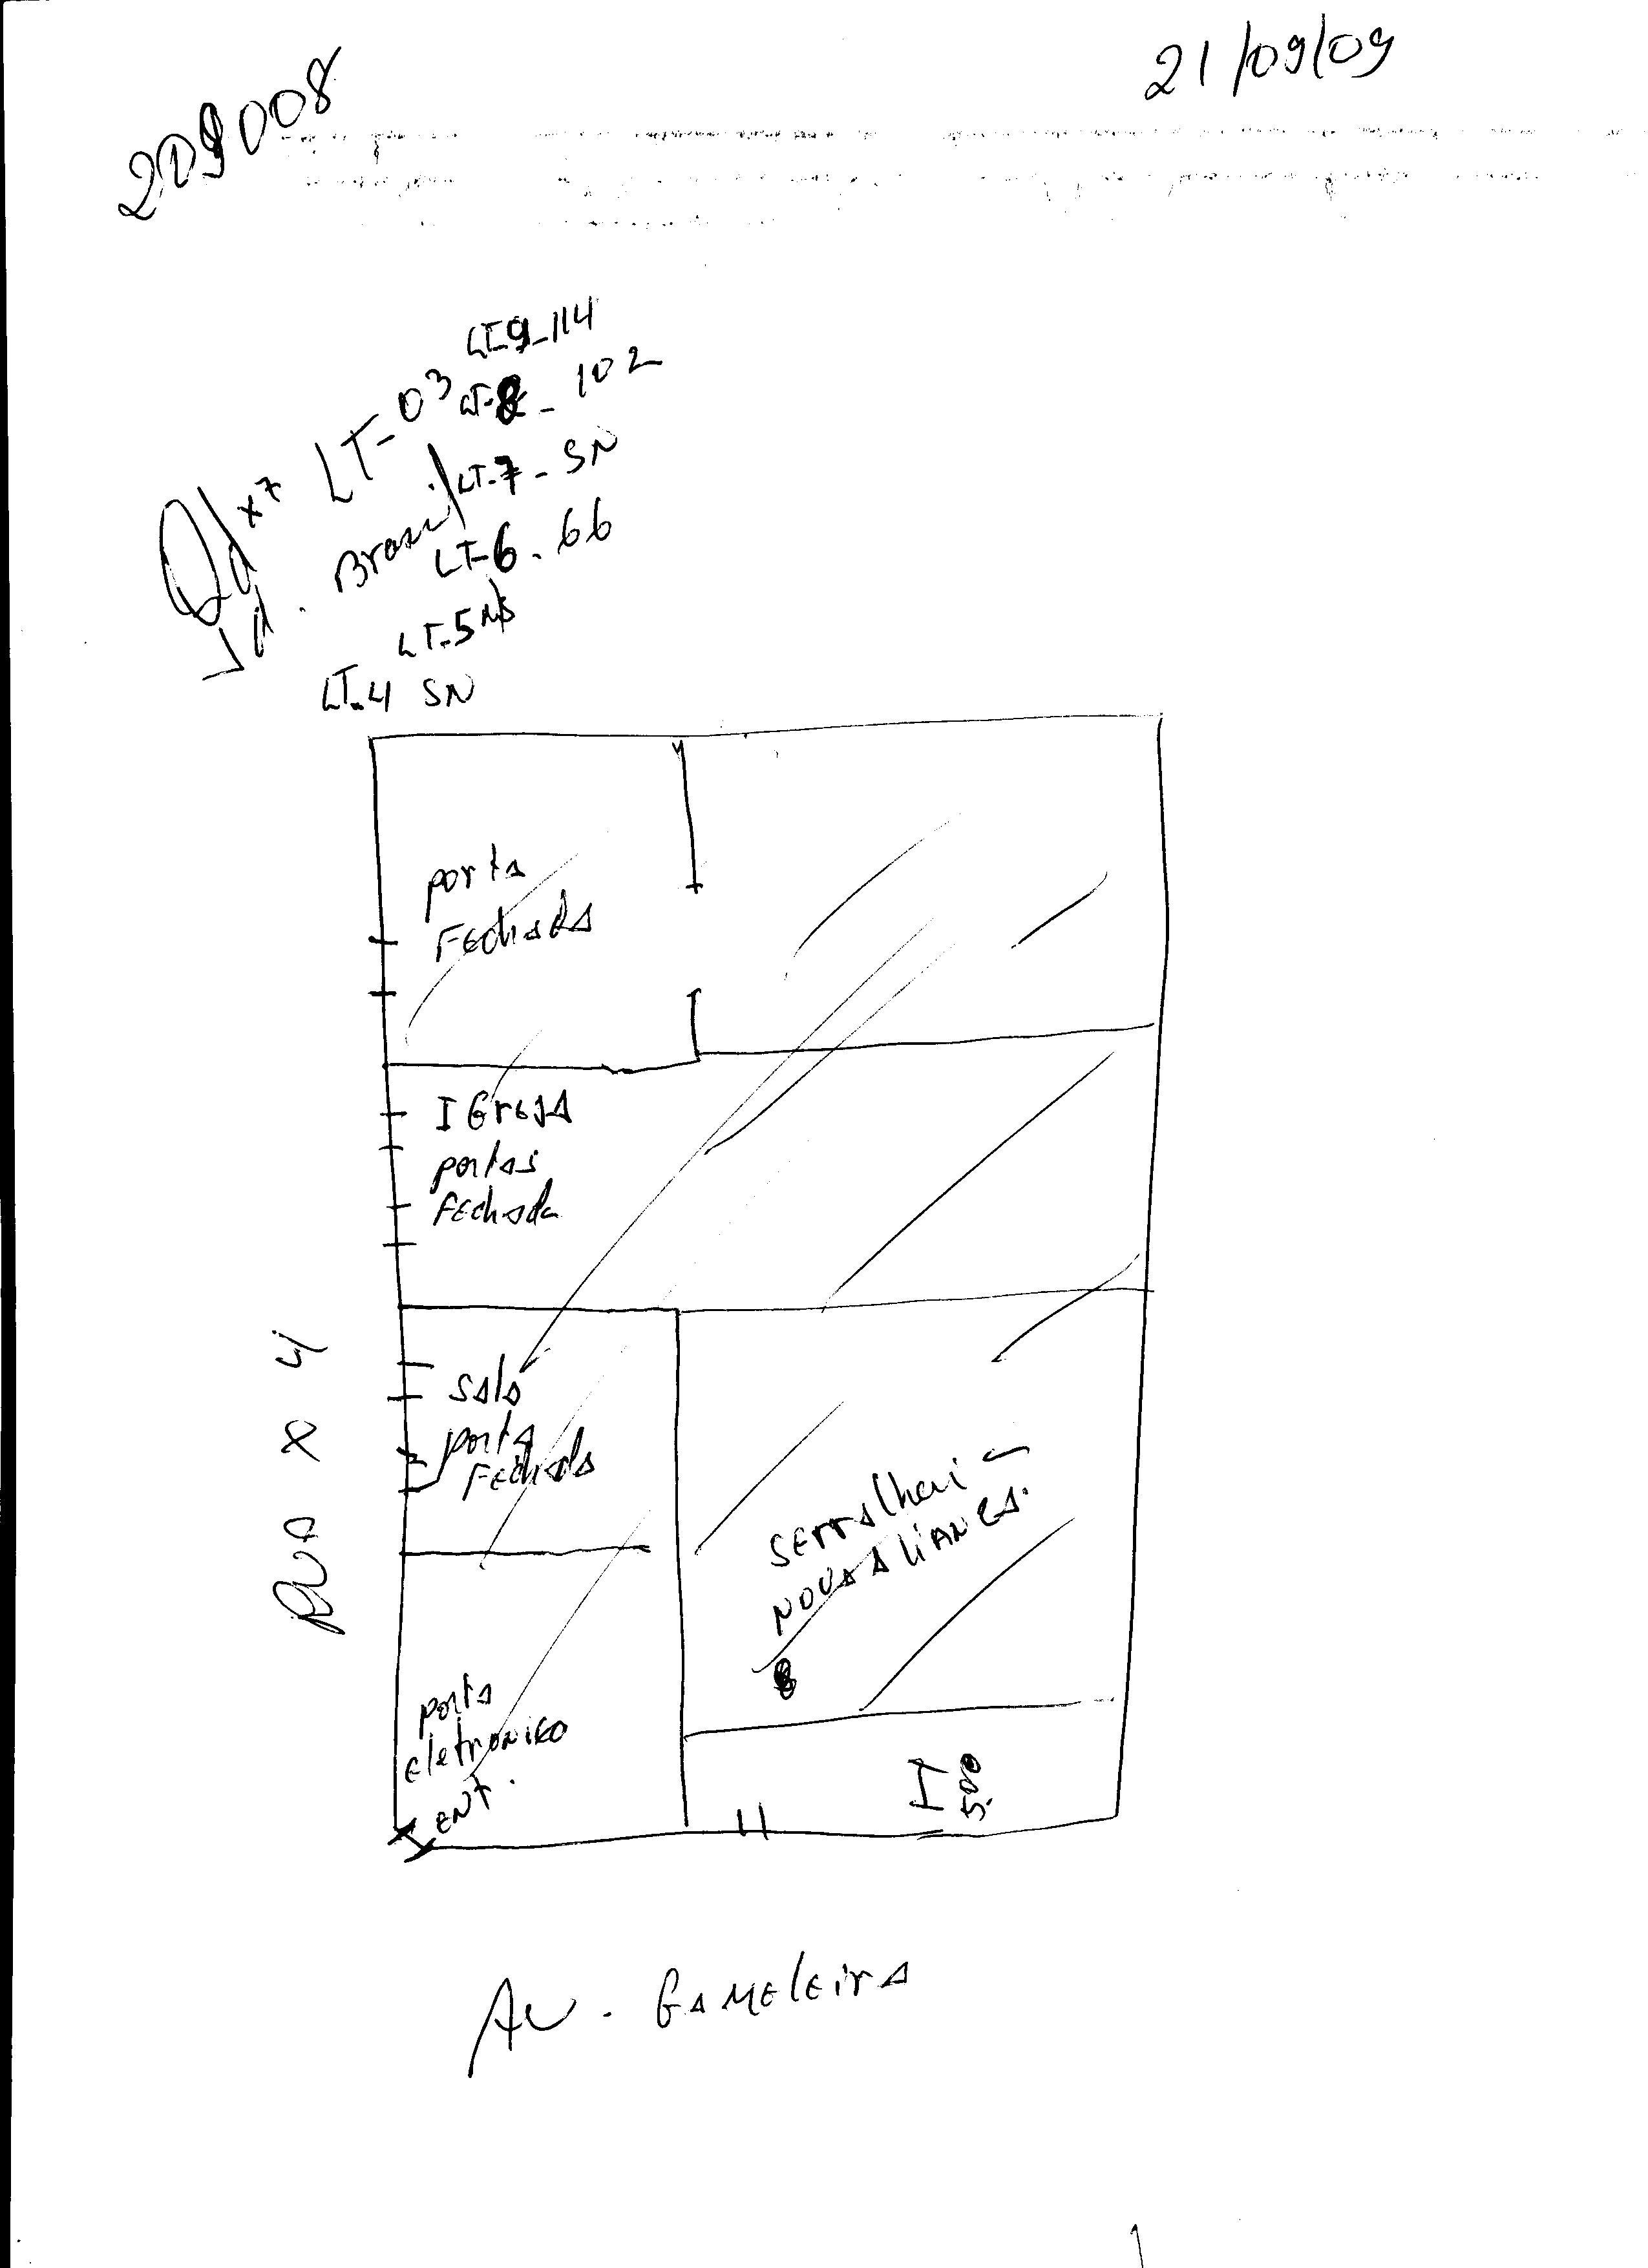 21/09/09
209008
LT-9-114
Qd x7 LT-03
LT-8-102
Jd. Brasil
LT-7-SN
LT-6-66
LT-5
LT-4 SN
porta
Fechada
IGreJA
portas
Fechada
Sala
porta
Fechada
Serralheri
NOVA ALIANCA.
8
porta
eletronico
ENT.
5.00
Rua x 4
Av. GAMELEIRA